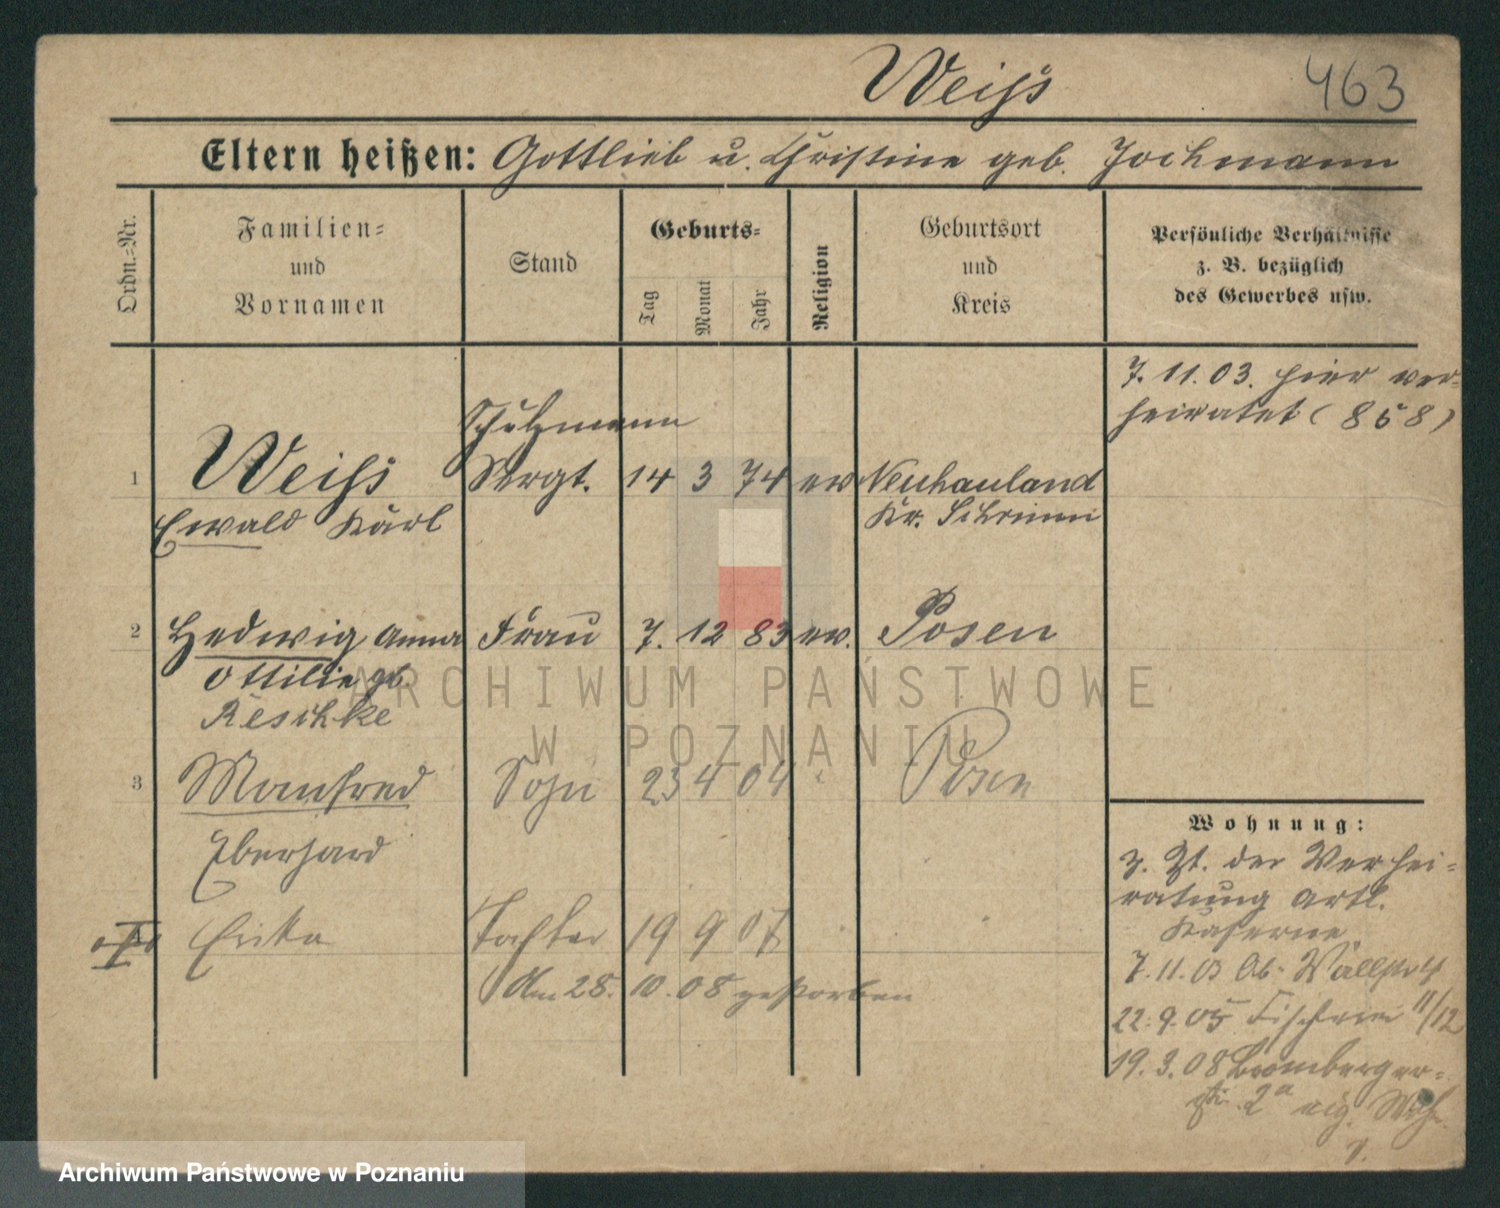 Weiß
463
Eltern heißen: Gottlieb u. Christine geb. Jochmann
Ordn.-Nr.
Familien- und Vornamen
Stand
Geburts-
Tag
Monat
Jahr
Religion
Geburtsort und Kreis
Persönliche Verhältnisse
z. B. bezüglich
des Gewerbes usw.
7. 11. 03. hier ver-
heiratet (858)
Schutzmann
1 Weiß Sergt. 14 3 74 ev Neuhauland
Ewald Karl Kr. Schrimm
2 Hedwig Anna Frau 7. 12 83 ev. Posen
Ottilie gb.
Reschke
3 Manfred Sohn 23 4 04 Posen
Eberhard
Erika Tochter 19 9 07
Am 28. 10. 08 gestorben
Wohnung:
z. Zt. der Verhei-
ratung Artl.
Kaserne
7. 11. 03 Ob. Wallstr
22. 9. 05 Fischerei 11/12
19. 3. 08 Bromberger-
str. 2a eig. Wohn
ARCHIWUM PAŃSTWOWE
W POZNANIU
Archiwum Państwowe w Poznaniu